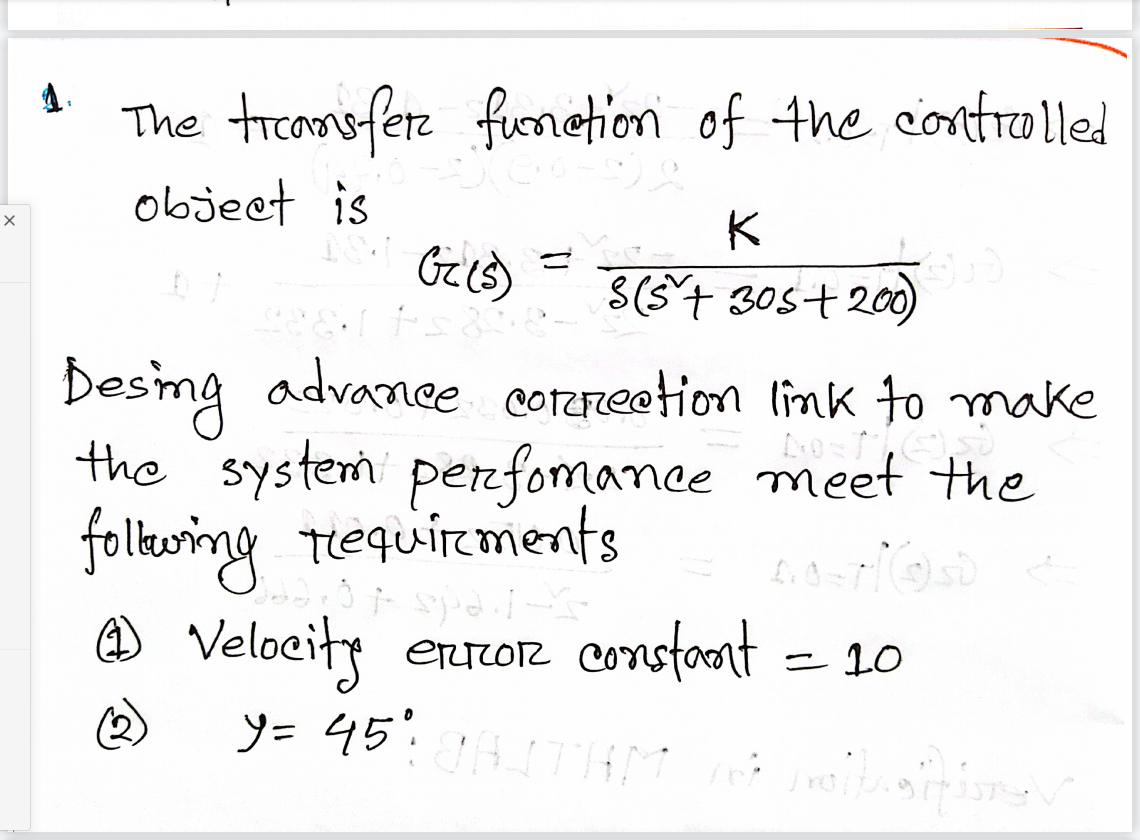 1. The transfer function of the controlled
object is
G(s) = K / s(s²+ 30s + 200)
Desing advance correction link to make
the system perfomance meet the
following requirments
① Velocity error constant = 10
② γ = 45°